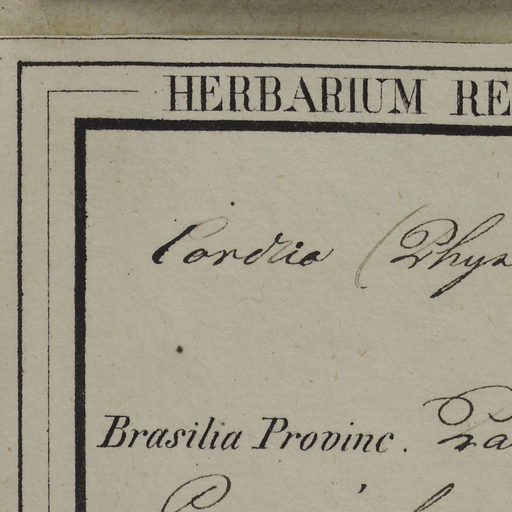 HERBARIUM RE
Cordia (Phys
Brasilia Provinc. Pa